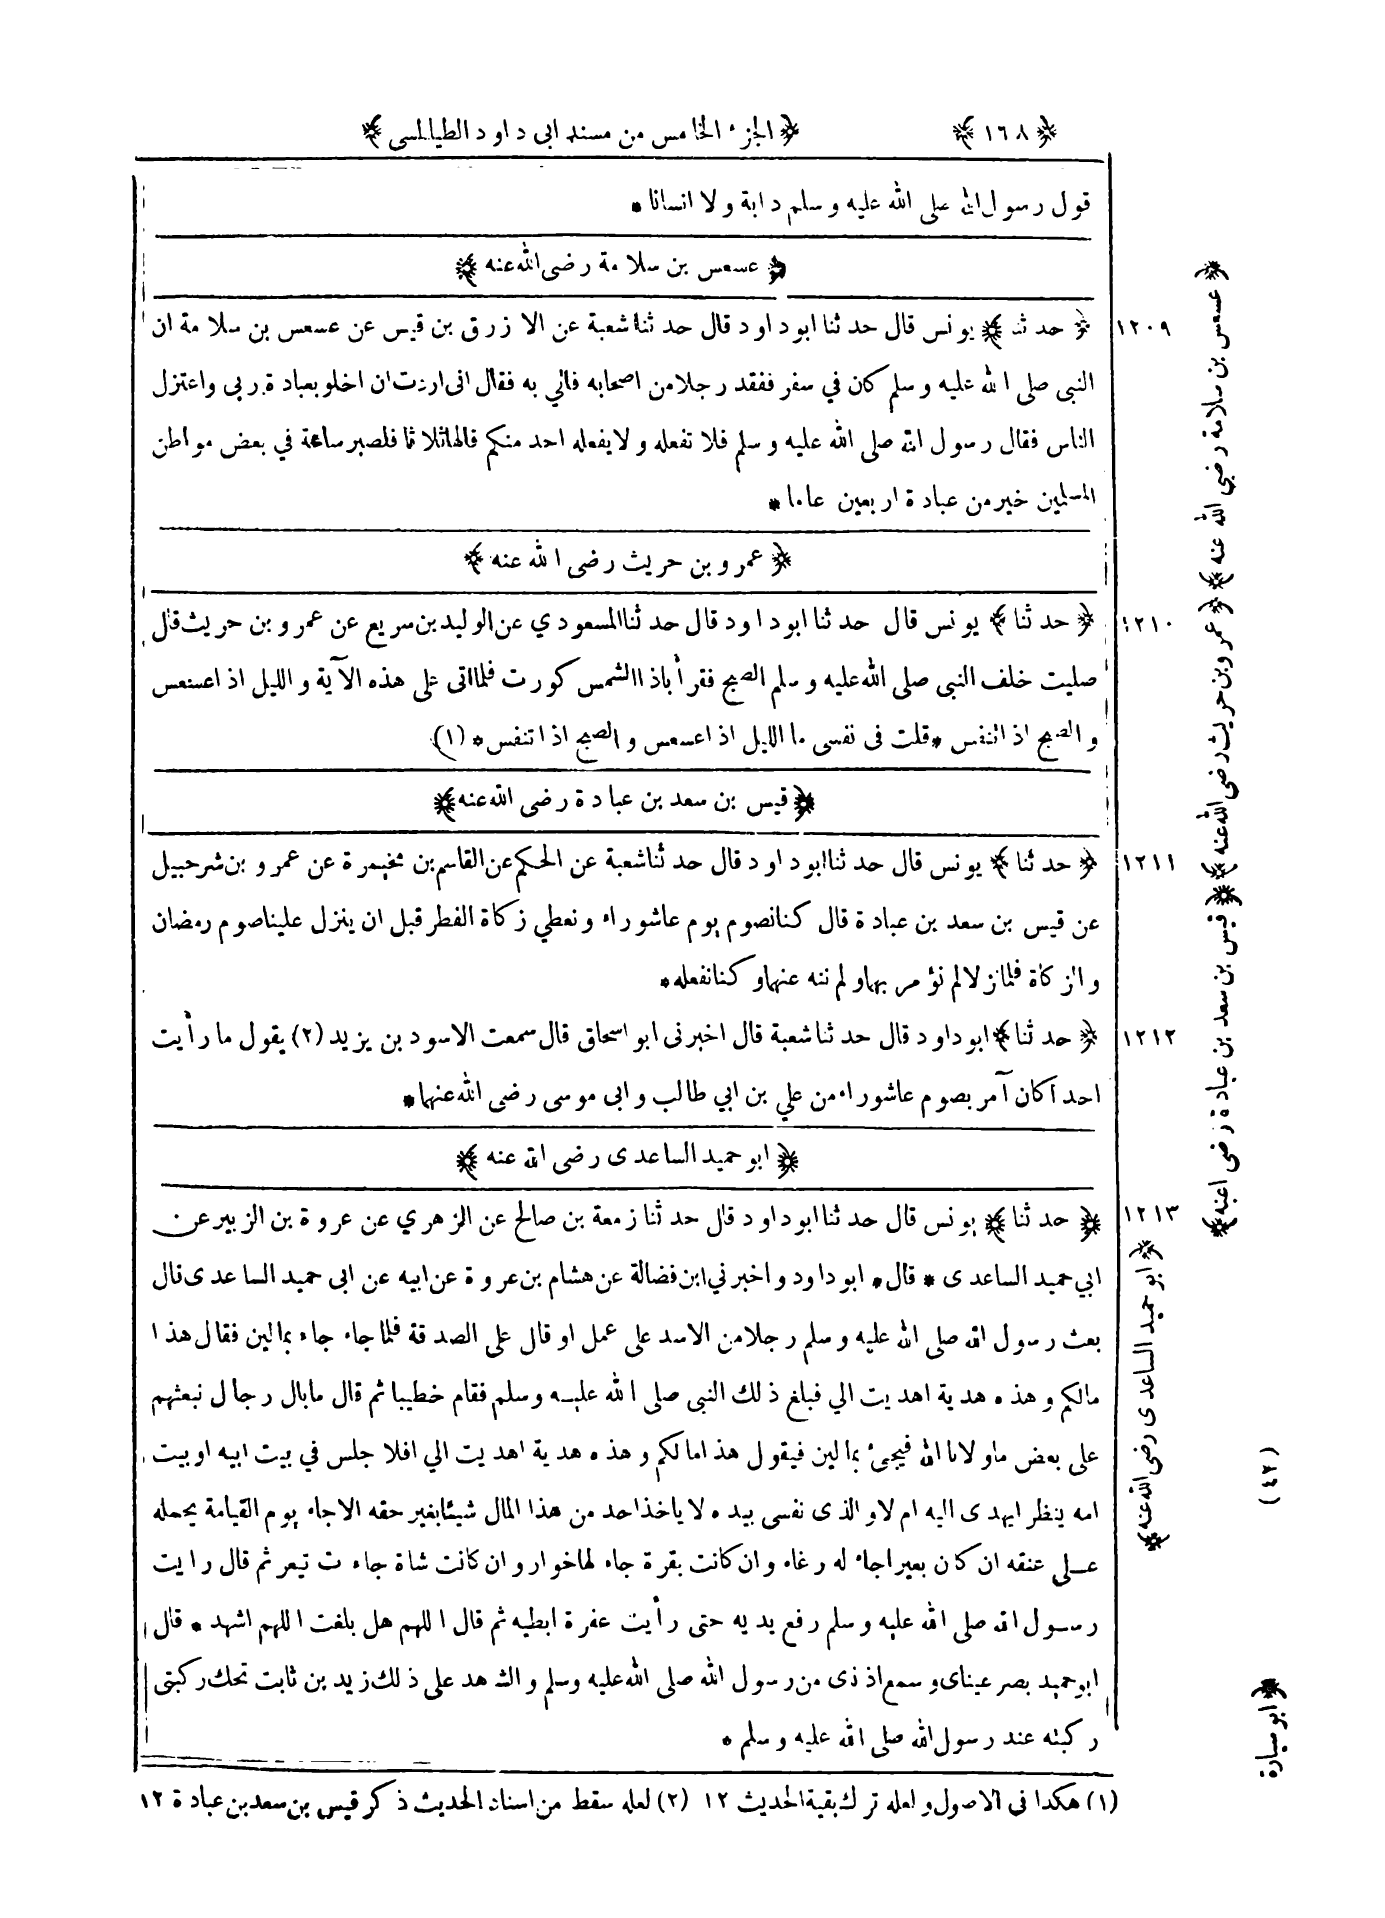 ﴿ ١٦٨ ﴾ ﴿ الجزء الخامس من مسند ابى داود الطيالسى ﴾
قول رسول الله صلى الله عليه وسلم دابة ولا انسانا *
﴿ عسعس بن سلامة رضى الله عنه ﴾
١٢٠٩ ﴿ حدثنا ﴾ يونس قال حدثنا ابوداود قال حدثنا شعبة عن الازرق بن قيس عن عسعس بن سلامة ان
النبى صلى الله عليه وسلم كان في سفر ففقد رجلا من اصحابه فاتي به فقال انى اردت ان اخلو بعبادة ربى واعتزل
الناس فقال رسول الله صلى الله عليه وسلم فلا تفعله ولا يفعله احد منكم قالها ثلاثا فلصبر ساعة في بعض مواطن
المسلمين خير من عبادة اربعين عاما *
﴿ عمرو بن حريث رضى الله عنه ﴾
١٢١٠ ﴿ حدثنا ﴾ يونس قال حدثنا ابوداود قال حدثنا المسعودي عن الوليد بن سريع عن عمرو بن حريث قال
صليت خلف النبى صلى الله عليه وسلم الصبح فقرأ باذا الشمس كورت فلما اتى على هذه الآية والليل اذا عسعس
والصبح اذا تنفس * قلت فى نفسى ما الليل اذا عسعس والصبح اذا تنفس * (١)
﴿ قيس بن سعد بن عبادة رضى الله عنه ﴾
١٢١١ ﴿ حدثنا ﴾ يونس قال حدثنا ابوداود قال حدثنا شعبة عن الحكم عن القاسم بن مخيمرة عن عمرو بن شرحبيل
عن قيس بن سعد بن عبادة قال كنا نصوم يوم عاشوراء ونعطي زكاة الفطر قبل ان ينزل علينا صوم رمضان
والزكاة فلما نزلا لم نؤمر بهما ولم ننه عنهما وكنا نفعله *
١٢١٢ ﴿ حدثنا ﴾ ابوداود قال حدثنا شعبة قال اخبرنى ابو اسحاق قال سمعت الاسود بن يزيد (٢) يقول ما رأيت
احدا كان آمر بصوم عاشوراء من علي بن ابي طالب وابى موسى رضى الله عنهما *
﴿ ابو حميد الساعدى رضى الله عنه ﴾
١٢١٣ ﴿ حدثنا ﴾ يونس قال حدثنا ابوداود قال حدثنا زمعة بن صالح عن الزهري عن عروة بن الزبير عن
ابي حميد الساعدى * قال * ابوداود واخبرني ابن فضالة عن هشام بن عروة عن ابيه عن ابى حميد الساعدى قال
بعث رسول الله صلى الله عليه وسلم رجلا من الاسد على عمل او قال على الصدقة فلما جاء جاء بمالين فقال هذا
مالكم وهذه هدية اهديت الي فبلغ ذلك النبى صلى الله عليه وسلم فقام خطيبا ثم قال ما بال رجال نبعثهم
على بعض ما ولانا الله فيجئ بمالين فيقول هذا مالكم وهذه هدية اهديت الي افلا جلس في بيت ابيه او بيت
امه ينظر ايهدى اليه ام لا والذى نفسى بيده لا ياخذ احد من هذا المال شيئا بغير حقه الا جاء يوم القيامة يحمله
على عنقه ان كان بعيرا جاء له رغاء وان كانت بقرة جاء لها خوار وان كانت شاة جاءت تيعر ثم قال رايت
رسول الله صلى الله عليه وسلم رفع يديه حتى رأيت عفرة ابطيه ثم قال اللهم هل بلغت اللهم اشهد * قال
ابو حميد بصر عيناى وسمع اذنى من رسول الله صلى الله عليه وسلم والشهد على ذلك زيد بن ثابت تحك ركبتى
ركبته عند رسول الله صلى الله عليه وسلم *
(١) هكذا فى الاصول ولعله ترك بقية الحديث ١٢ (٢) لعله سقط من اسناد الحديث ذكر قيس بن سعد بن عبادة ١٢
﴿ عسعس بن سلامة رضي الله عنه ﴾ ﴿ عمرو بن حريث رضى الله عنه ﴾ ﴿ قيس بن سعد بن عبادة رضى اعنه ﴾
﴿ ابو حميد الساعدى رضى الله عنه ﴾
(٤٢)
﴿ ابو